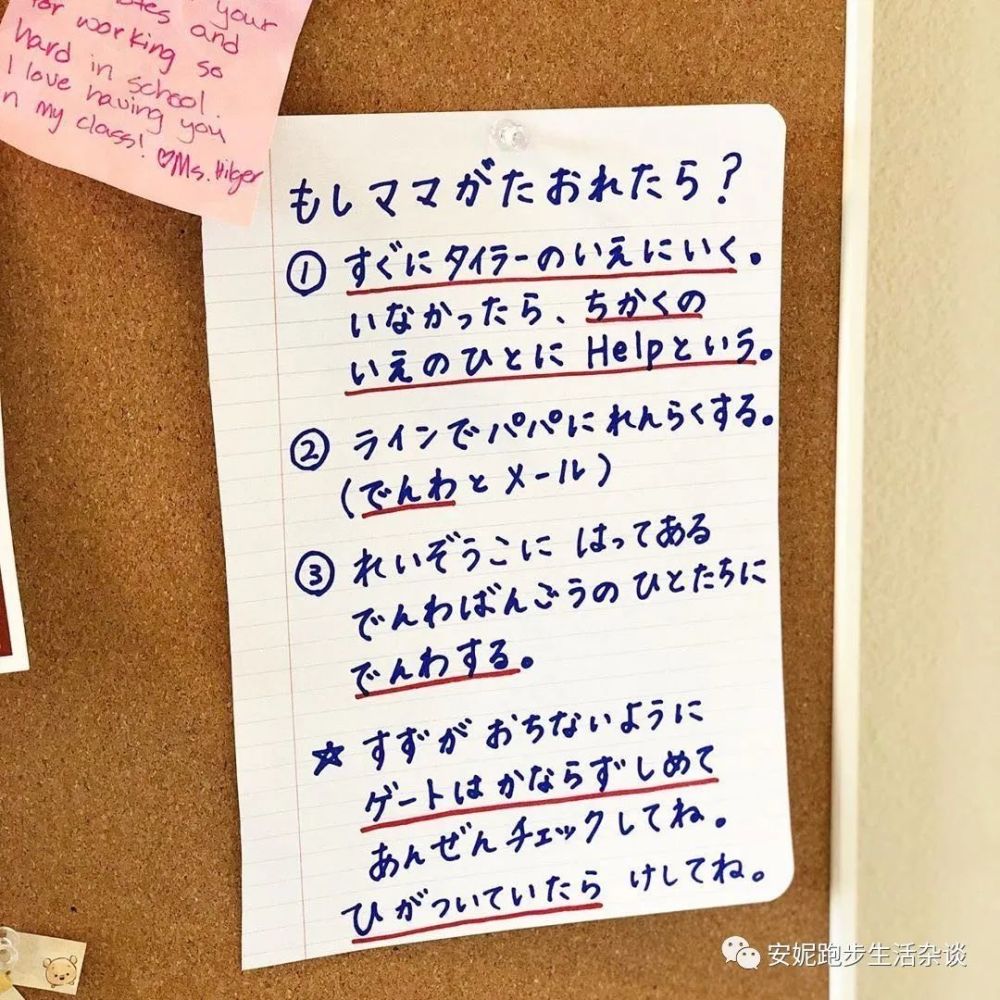 your
and
for working so
hard in school.
I love having you
in my class! ♡Ms. Hilger
もしママがたおれたら?
① すぐにタイラーのいえにいく。
いなかったら、ちかくの
いえのひとに Helpという。
② ラインでパパにれんらくする。
(でんわとメール)
③ れいぞうこに はってある
でんわばんごうの ひとたちに
でんわする。
☆ すずが おちないように
ゲートは かならずしめて
あんぜんチェックしてね。
ひがついていたら けしてね。
安妮跑步生活杂谈